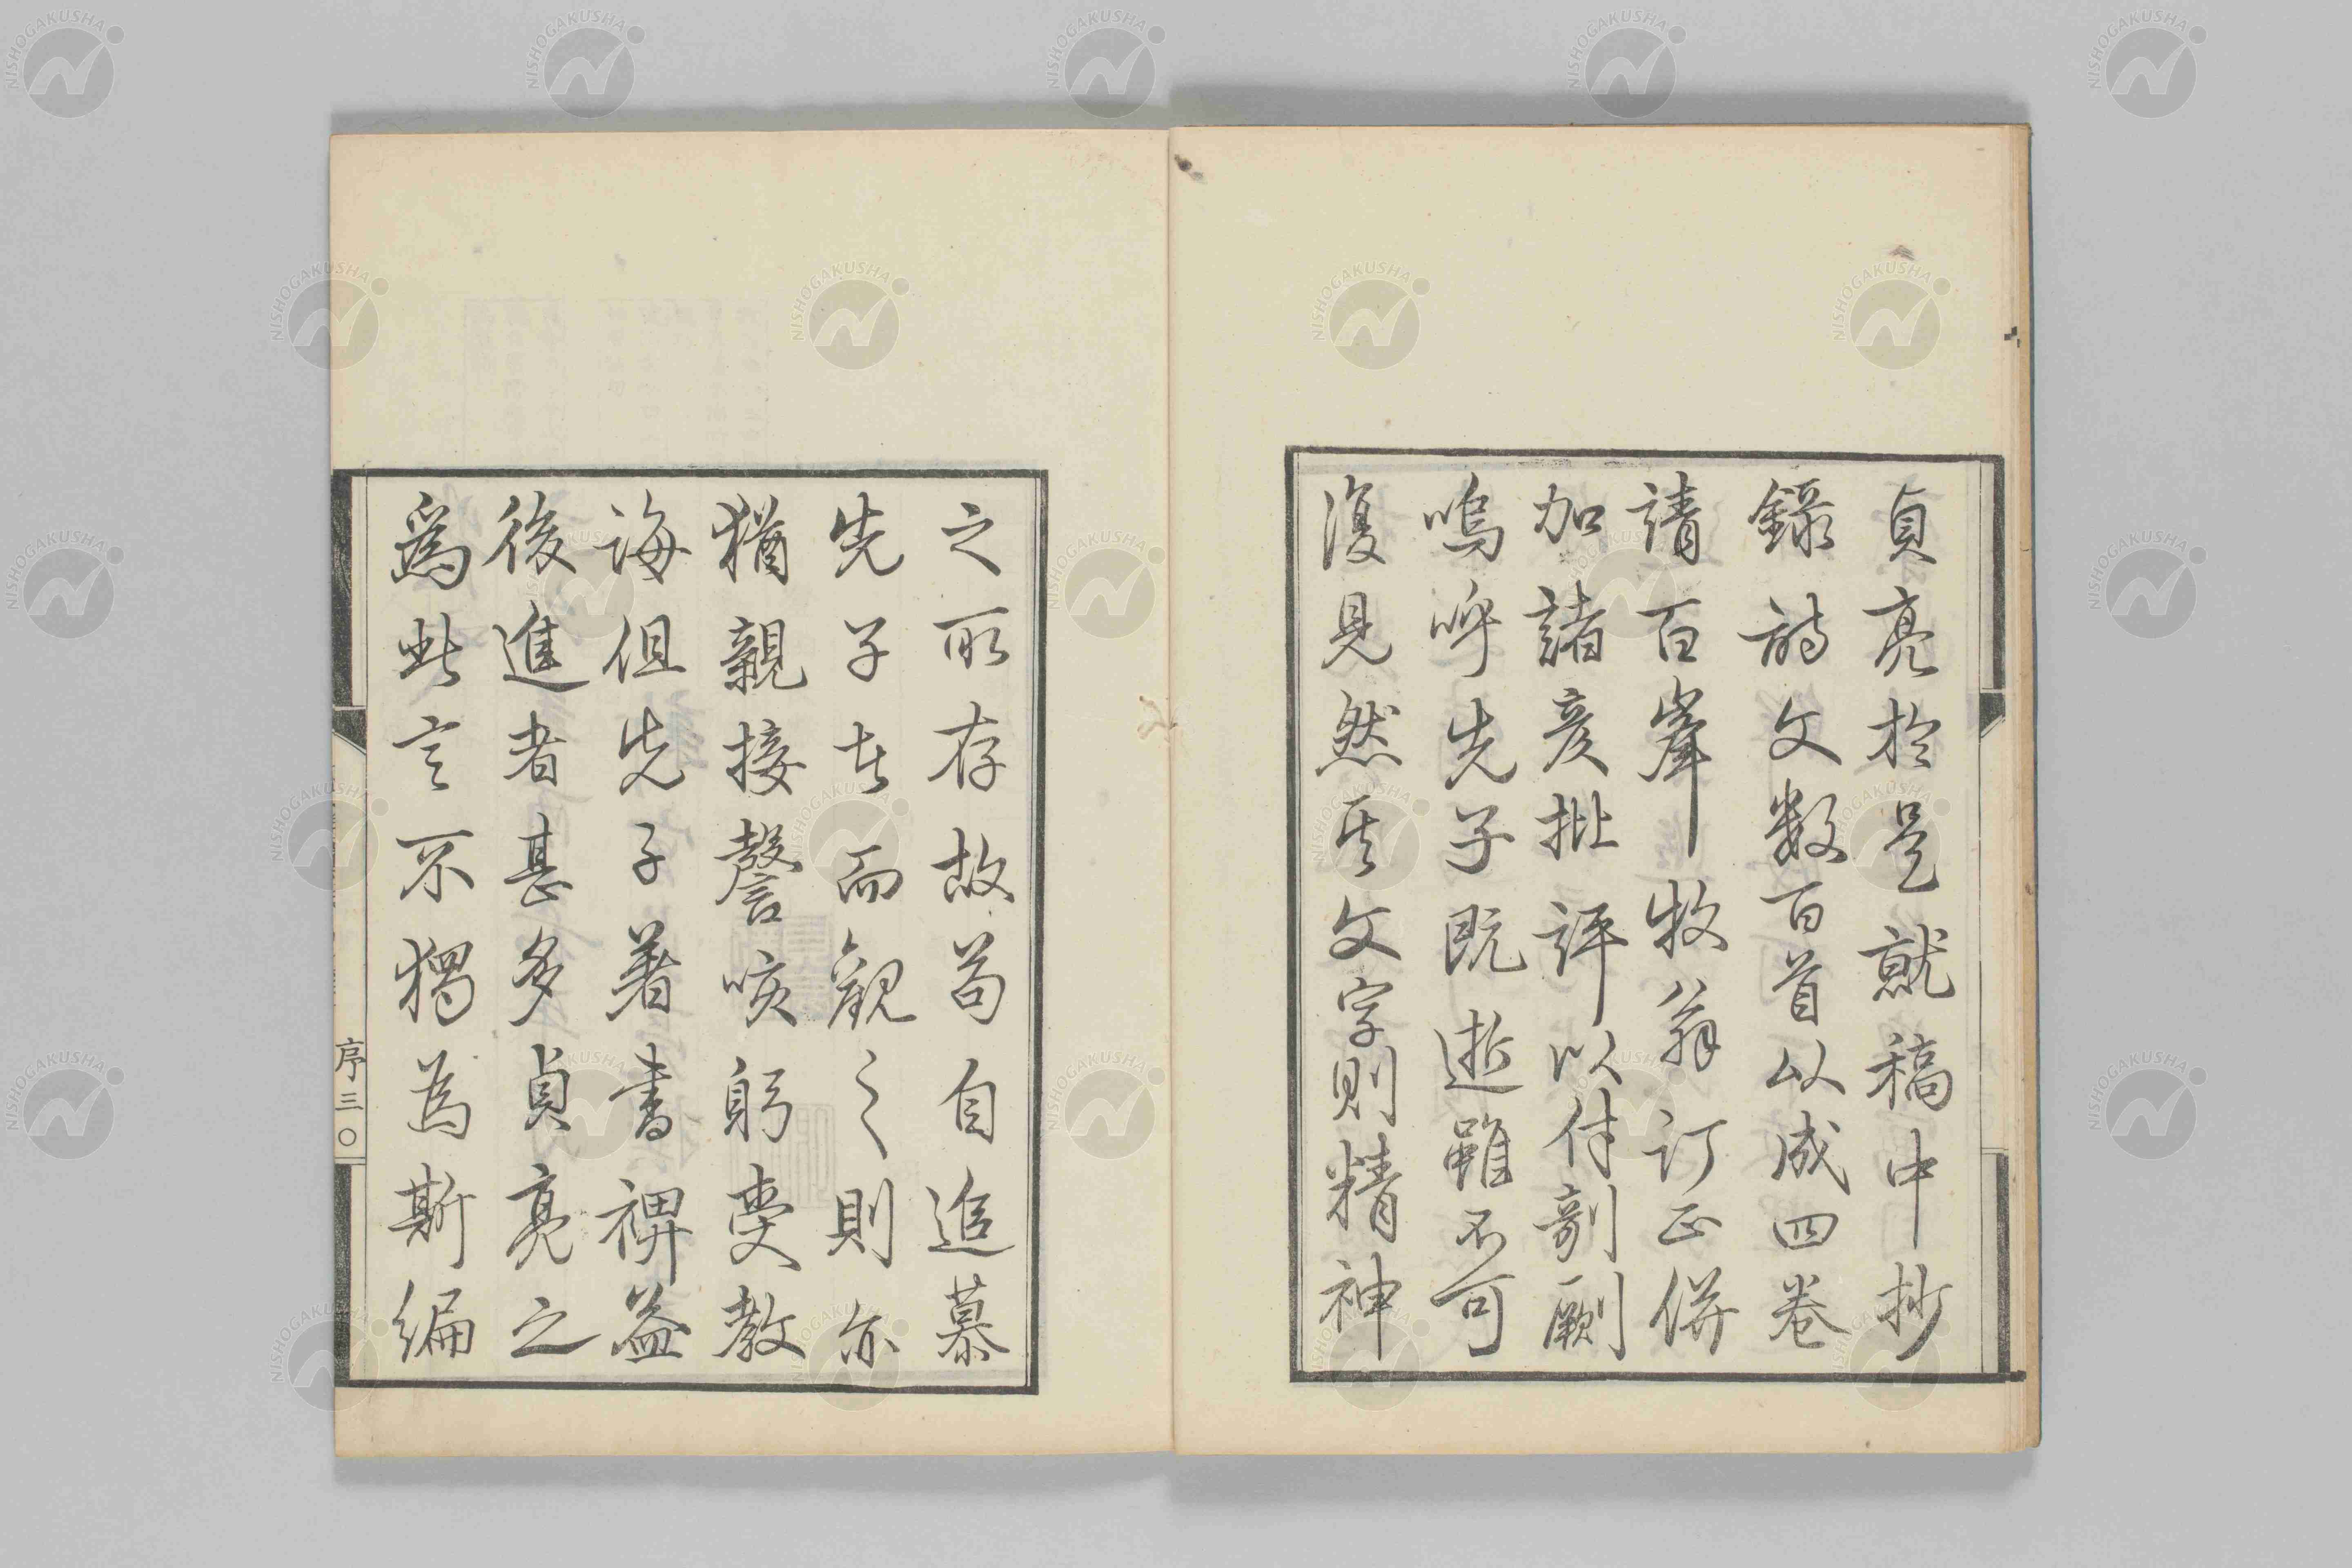 貞亮於是就稿中抄
錄詩文數百首以成四卷
請百峯牧翁訂正併
加諸彦批評以付剞劂
嗚呼先子既逝雖不可
復見然其文字則精神
之所存故苟自追慕
先子者而觀之則亦
猶親接謦咳躬受教
誨但先子著書裨益
後進者甚多貞亮之
為此言不獨為斯編
序三〇
NISHOGAKUSHA